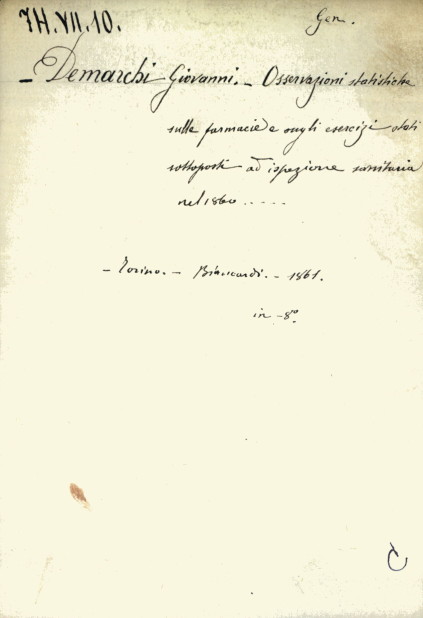 7H.VII.10.
Gen.
– Demarchi Giovanni. – Osservazioni statistiche
sulle farmacie e sugli esercizi stati
sottoposti ad ispezione sanitaria
nel 1860 .....
– Torino. – Biancardi. – 1861.
in – 8º.